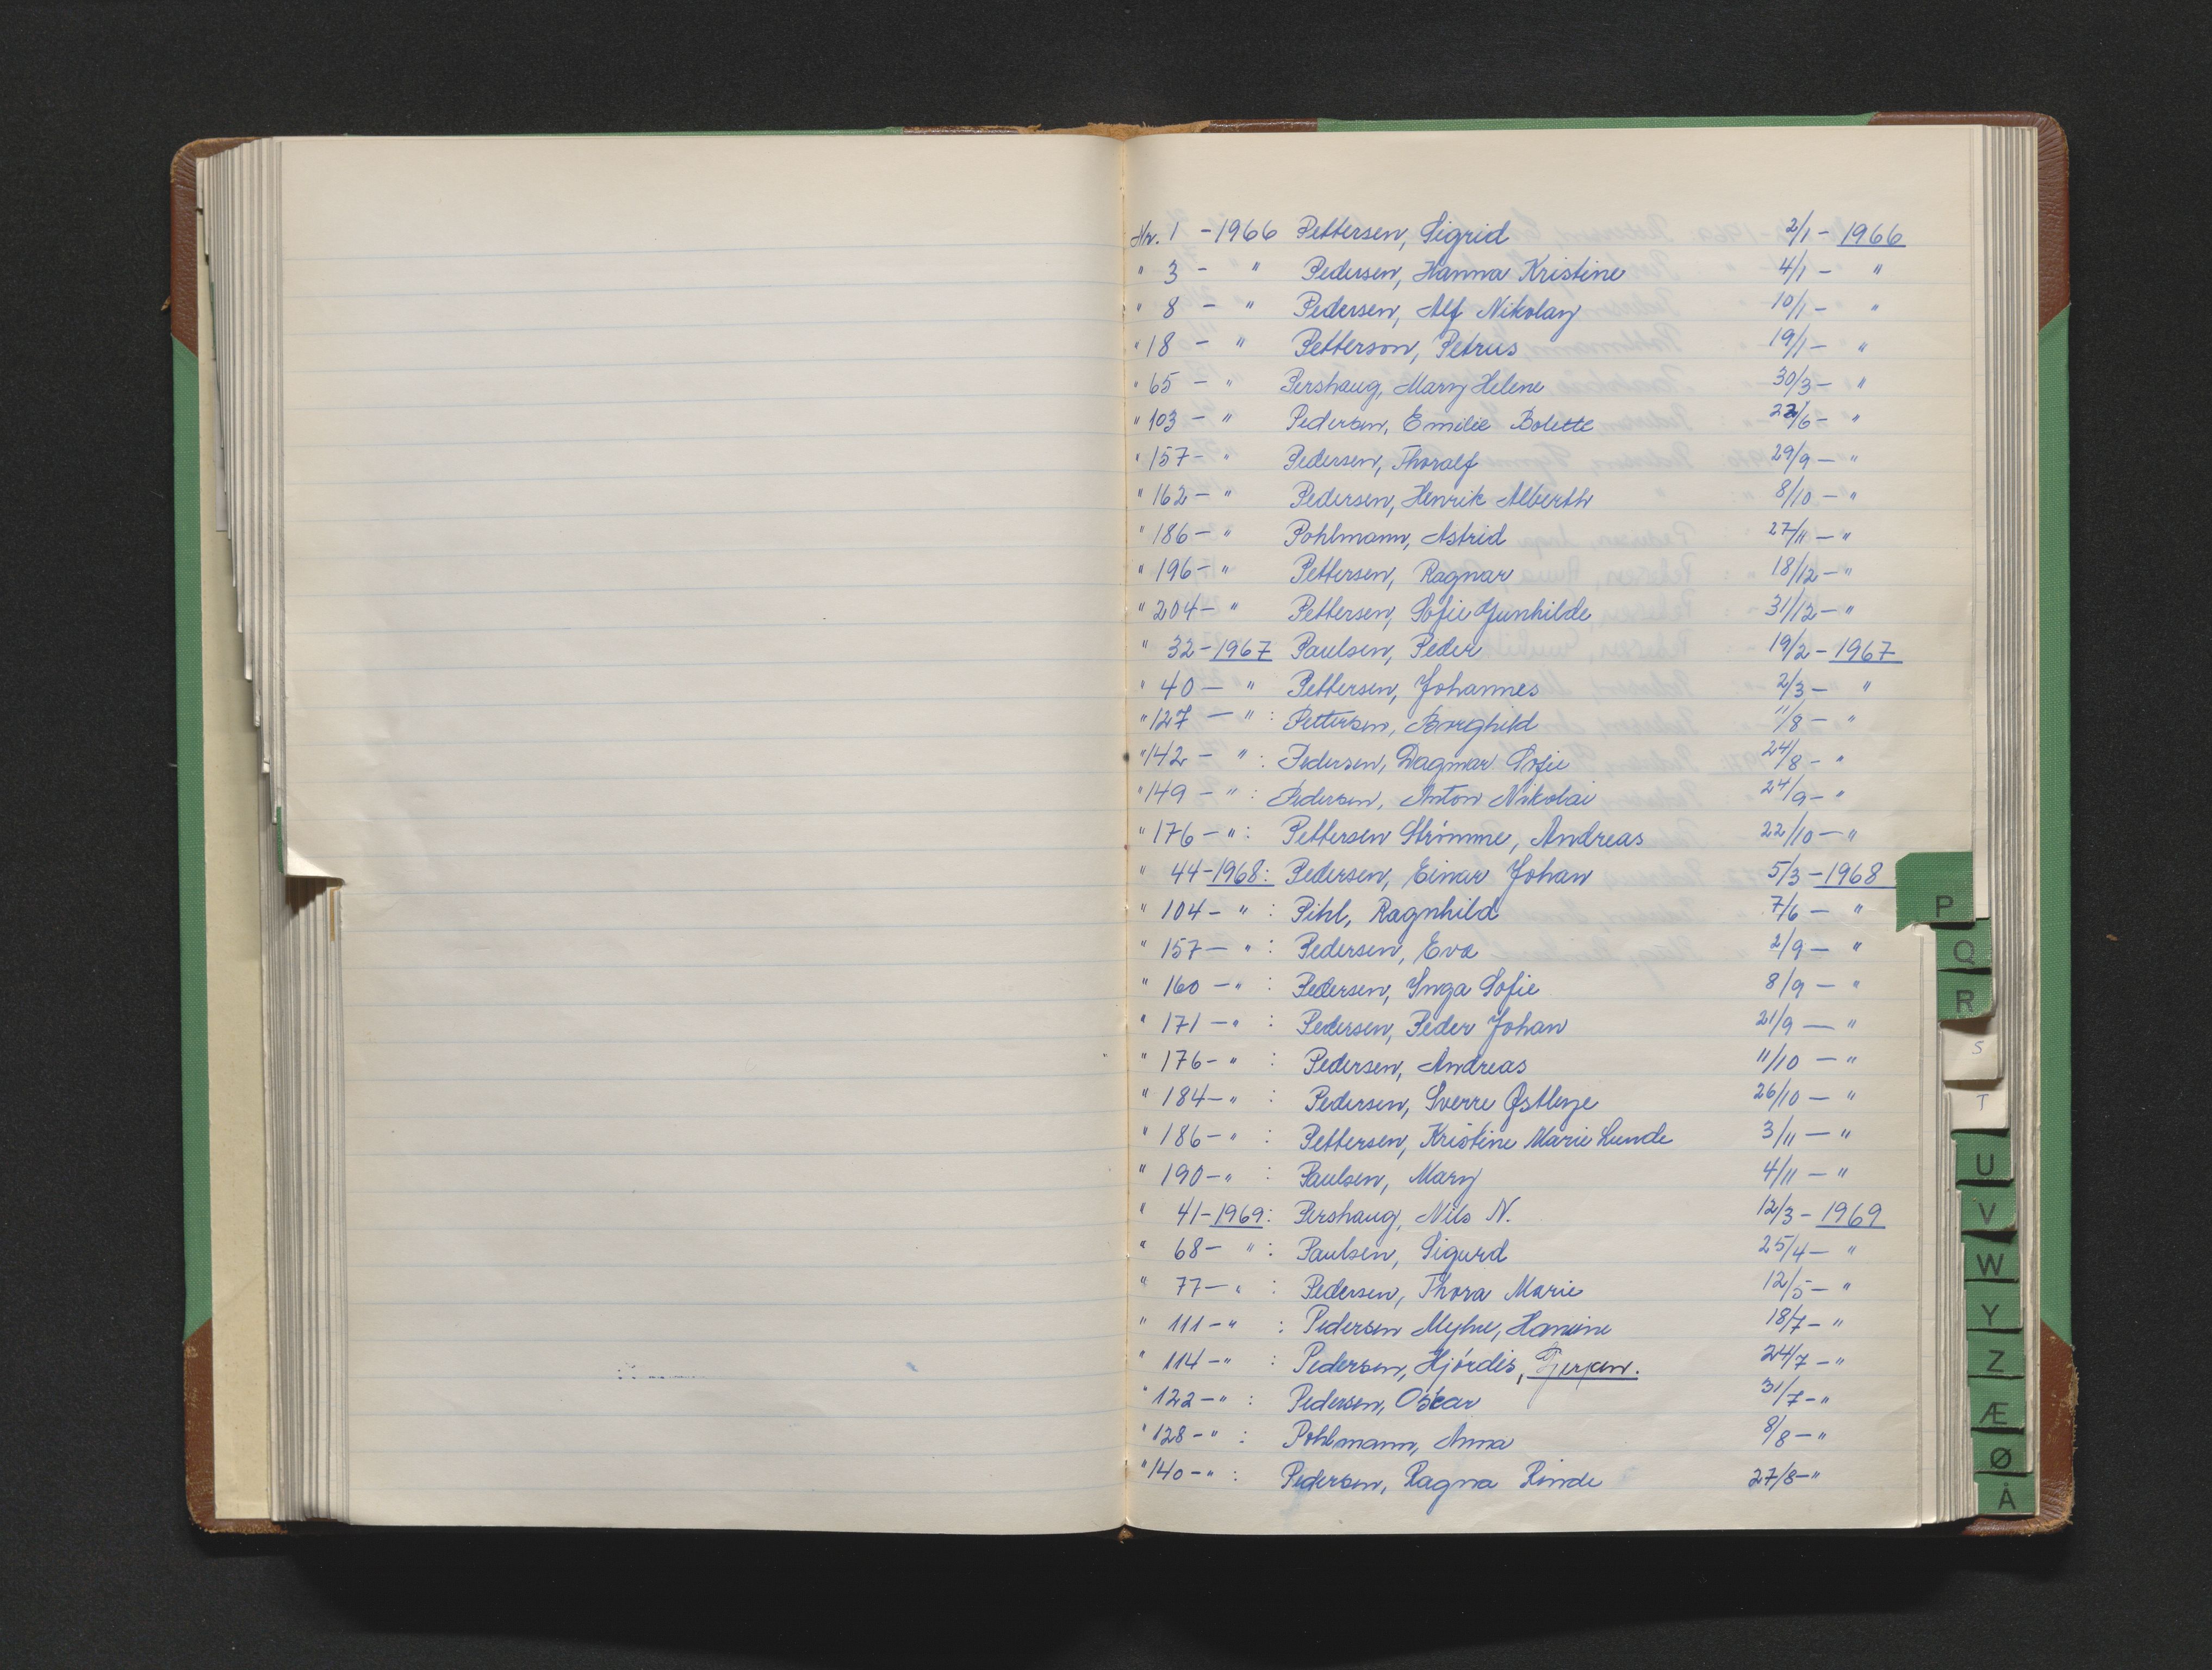 Nr. 1 - 1966 Pettersen, Sigrid 2/1 - 1966
" 3 - " Pedersen, Hanna Kristine 4/1 - "
" 8 - " Pedersen, Alf Nikolay 10/1 - "
" 18 - " Petterson, Petrus 19/1 - "
" 65 - " Pershaug, Mary Helene 30/3 - "
" 103 - " Pedersen, Emilie Bolette 22/6 - "
" 157 - " Pedersen, Thoralf 29/9 - "
" 162 - " Pedersen, Henrik Alberth 8/10 - "
" 186 - " Pohlmann, Astrid 27/11 - "
" 196 - " Pettersen, Ragnar 18/12 - "
" 204 - " Pettersen, Sofie Gunhilde 31/12 - "
" 32 - 1967 Paulsen, Peder 19/2 - 1967
" 40 - " Pettersen, Johannes 2/3 - "
" 127 - " : Pettersen, Borghild 11/8 - "
" 142 - " : Pedersen, Dagmar Sofie 24/8 - "
" 149 - " : Pedersen, Anton Nikolai 24/9 - "
" 176 - " : Pettersen Strømme, Andreas 22/10 - "
" 44 - 1968 : Pedersen, Einar Johan 5/3 - 1968
" 104 - " : Pihl, Ragnhild 7/6 - "
" 157 - " : Pedersen, Eva 2/9 - "
" 160 - " : Pedersen, Inga Sofie 8/9 - "
" 171 - " : Pedersen, Peder Johan 21/9 - "
" 176 - " : Pedersen, Andreas 11/10 - "
" 184 - " : Pedersen, Sverre Østbye 26/10 - "
" 186 - " : Pettersen, Kristine Marie Lunde 3/11 - "
" 190 - " : Paulsen, Mary 4/11 - "
" 41 - 1969 : Pershaug, Nils N. 12/3 - 1969
" 68 - " : Paulsen, Sigurd 25/4 - "
" 77 - " : Pedersen, Thora Marie 12/5 - "
" 111 - " : Pedersen Myhre, Hanine 18/7 - "
" 114 - " : Pedersen, Hjördis, Gjerpen. 24/7 - "
" 122 - " : Pedersen, Oskar 31/7 - "
" 128 - " : Pohlmann, Anna 8/8 - "
" 140 - " : Pedersen, Ragna Rinde 27/8 - "
P
Q
R
S
T
U
V
W
Y
Z
Æ
Ø
Å